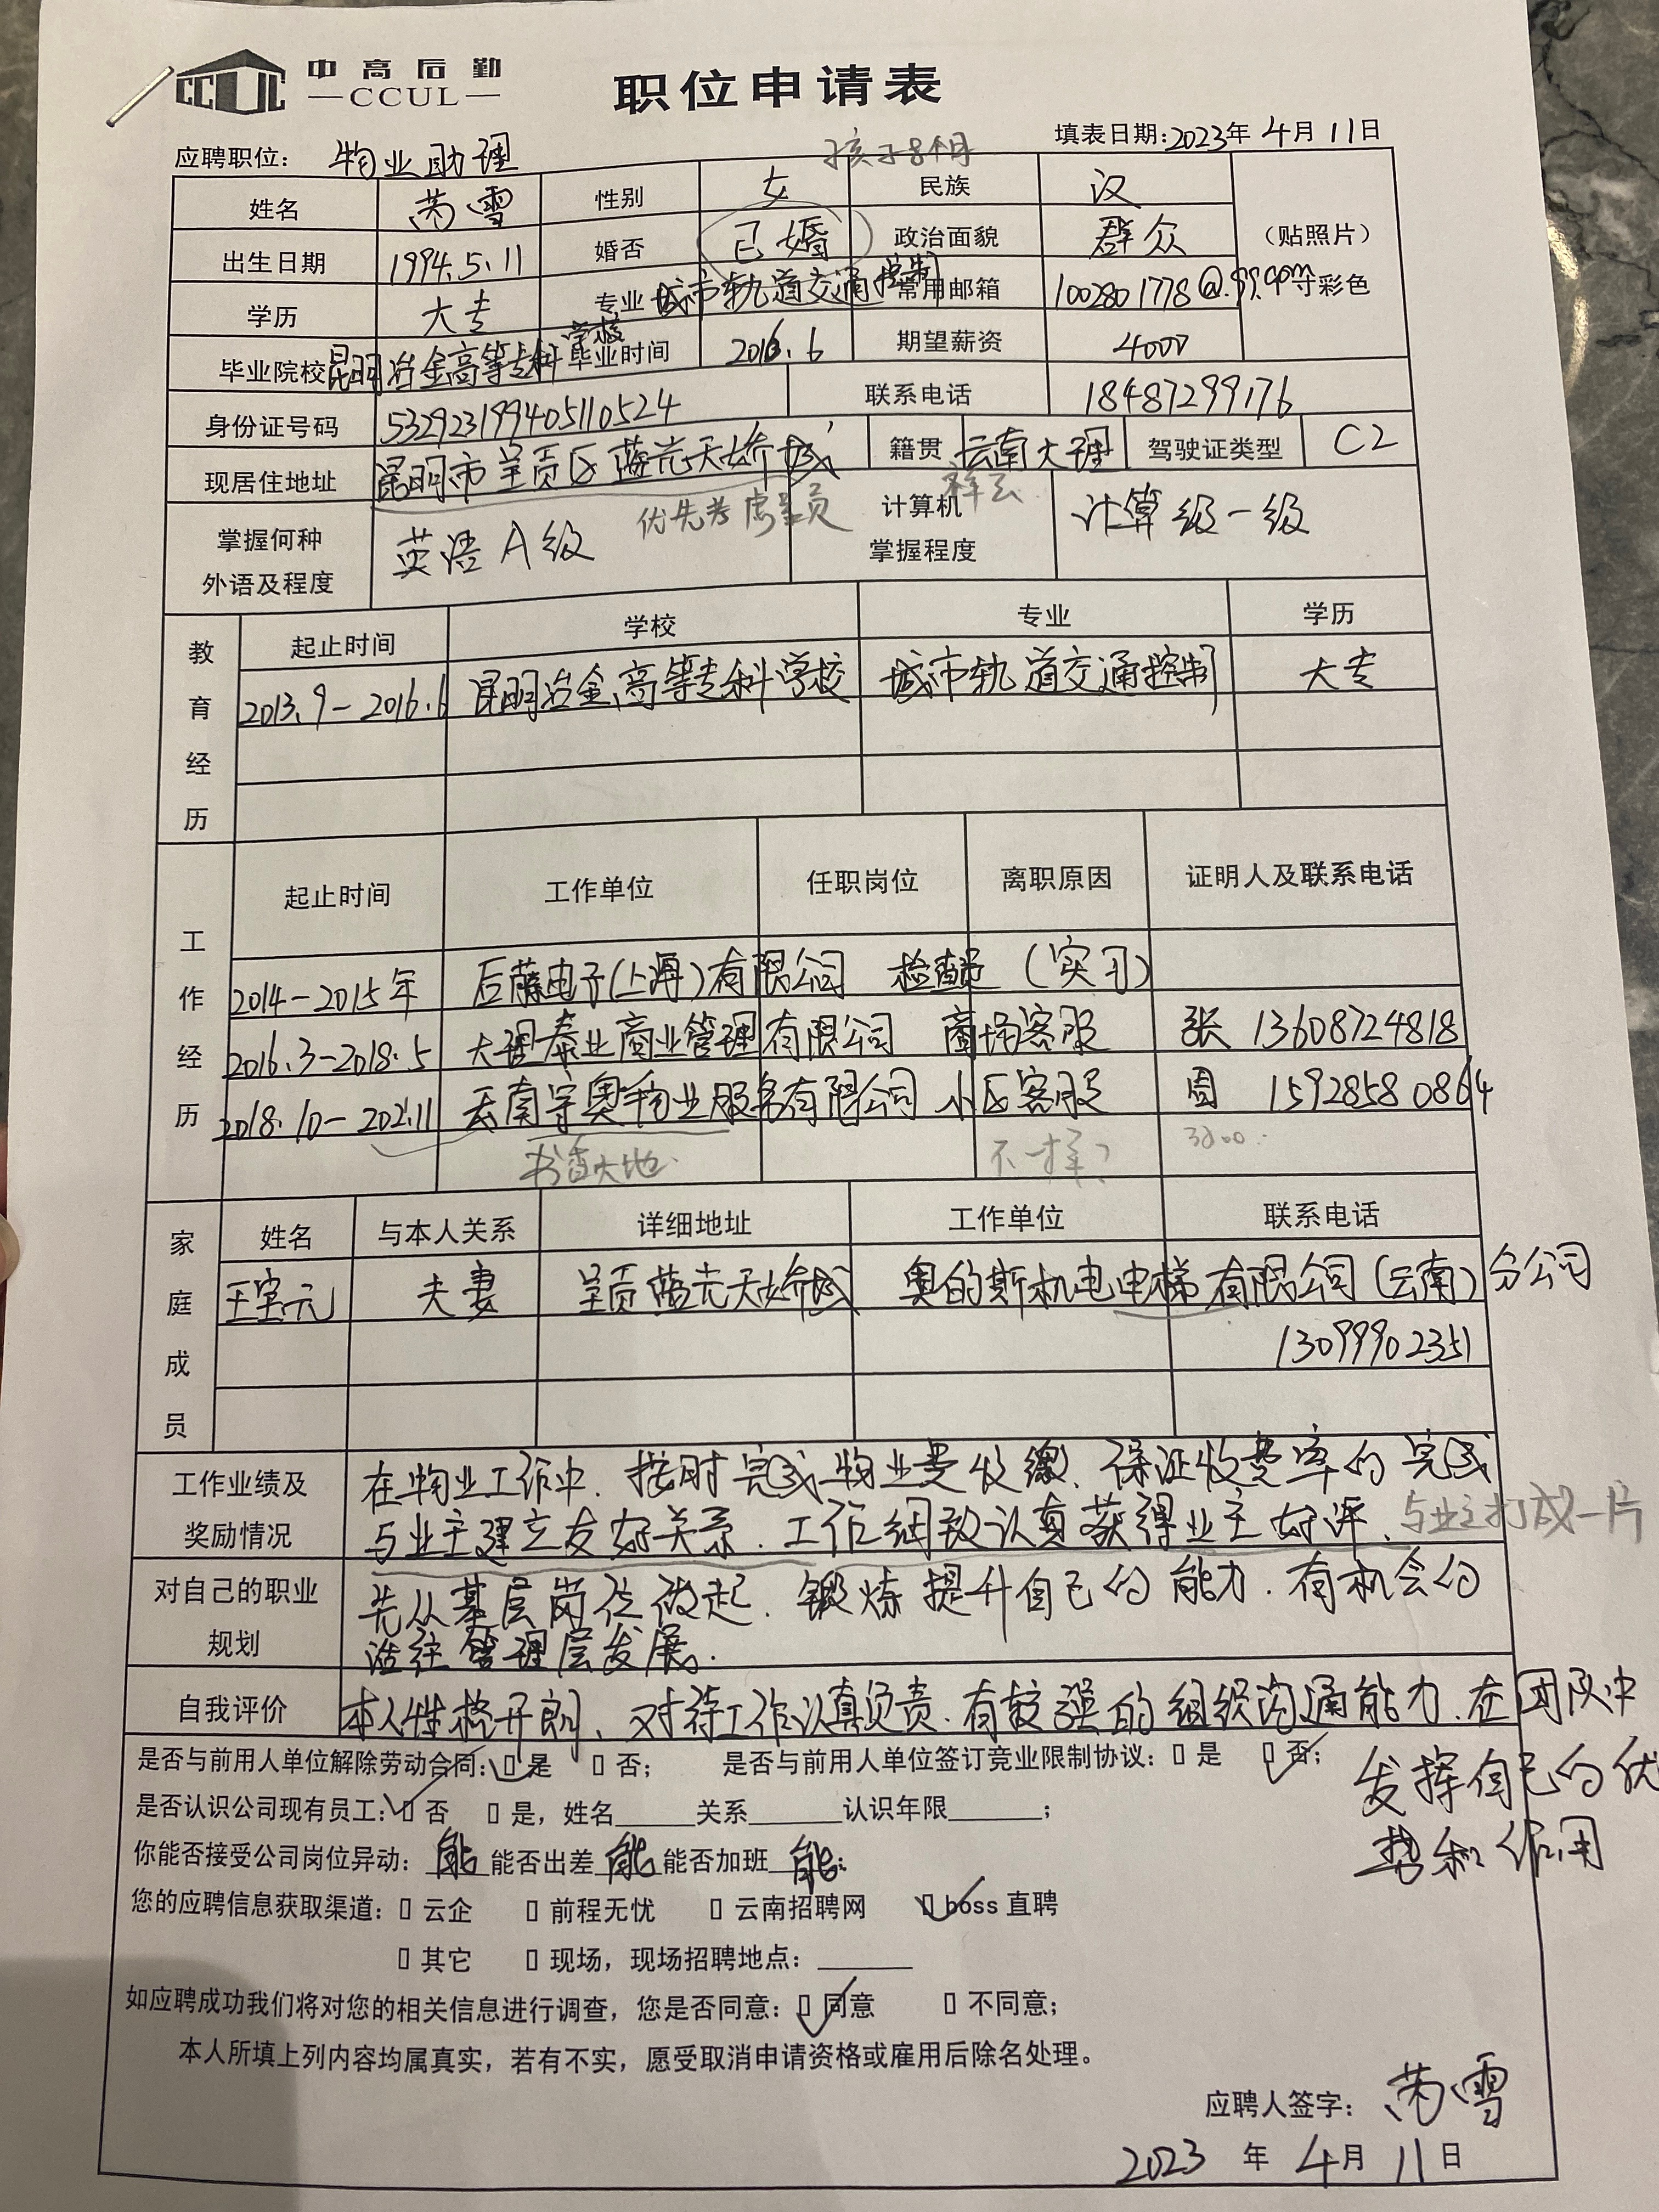 中高后勤
CCUL
职位申请表
应聘职位: 物业助理 孩子8个月 填表日期:2023年4月11日
姓名 芮雪 性别 女 民族 汉 （贴照片）
出生日期 1994.5.11 婚否 已婚 政治面貌 群众
学历 大专 专业 城市轨道交通控制 常用邮箱 1002801778@qq.com 寸彩色
毕业院校 昆明冶金高等专科学校 毕业时间 2016.6 期望薪资 4000
身份证号码 532923199405110524 联系电话 18487299176
现居住地址 昆明市呈贡区蓝光天娇城 籍贯 云南大理 祥云 驾驶证类型 C2
掌握何种外语及程度 英语A级 优先考虑呈贡 计算机掌握程度 计算级一级
教育经历
起止时间 学校 专业 学历
2013.9-2016.6 昆明冶金高等专科学校 城市轨道交通控制 大专
工作经历
起止时间 工作单位 任职岗位 离职原因 证明人及联系电话
2014-2015年 后藤电子(上海)有限公司 检查员 (实习)
2016.3-2018.5 大理泰业商业管理有限公司 商场客服 张 13608724818
2018.10-202.11 云南宇奥物业服务有限公司 小区客服 周 15928580864
书香大地 不一样?
家庭成员
姓名 与本人关系 详细地址 工作单位 联系电话
王宝元 夫妻 呈贡蓝光天娇城 奥的斯机电电梯有限公司(云南)分公司
13099902351
工作业绩及奖励情况 在物业工作中.按时完成物业费收缴.保证收费率的完成
与业主建立友好关系.工作细致认真获得业主好评. 与业主打成一片
对自己的职业规划 先从基层岗位做起.锻炼提升自己的能力.有机会的
话往管理层发展。
自我评价 本人性格开朗、对待工作认真负责.有较强的组织沟通能力.在团队中
发挥自己的优
势和作用
是否与前用人单位解除劳动合同:☑是 □否; 是否与前用人单位签订竞业限制协议:□是 ☑否;
是否认识公司现有员工:☑否 □是,姓名______关系_______认识年限_______;
你能否接受公司岗位异动: 能 能否出差 能 能否加班 能;
您的应聘信息获取渠道:□云企 □前程无忧 □云南招聘网 ☑boss直聘
□其它 □现场,现场招聘地点:_______
如应聘成功我们将对您的相关信息进行调查,您是否同意:☑同意 □不同意;
本人所填上列内容均属真实,若有不实,愿受取消申请资格或雇用后除名处理。
应聘人签字: 芮雪
2023年4月11日